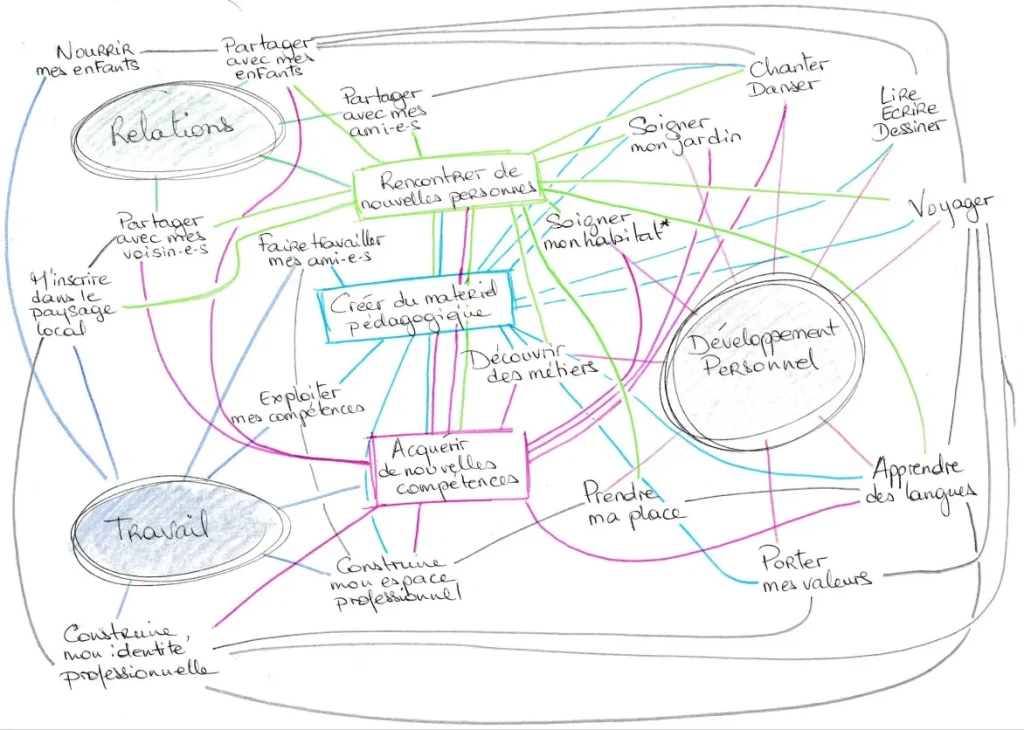 Nourrir
mes enfants
Partager
avec mes
enfants
Chanter
Danser
Lire
Ecrire
Dessiner
Partager
avec mes
ami-e-s
Soigner
mon jardin
Relations
Rencontrer de
nouvelles personnes
Voyager
Partager
avec mes
voisin-e-s
Faire travailler
mes ami-e-s
Soigner
mon habitat*
M'inscrire
dans le
paysage
local
Créer du materiel
pédagogique
Développement
Personnel
Découvrir
des métiers
Exploiter
mes compétences
Acquérir
de nouvelles
compétences
Prendre
ma place
Apprendre
des langues
Travail
Construire
mon espace
professionnel
Porter
mes valeurs
Construire
mon identité
professionnelle